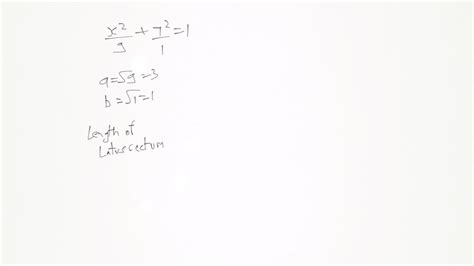 x²/9 + y²/1 = 1
a=√9=3
b=√1=1
Length of
Latus rectum